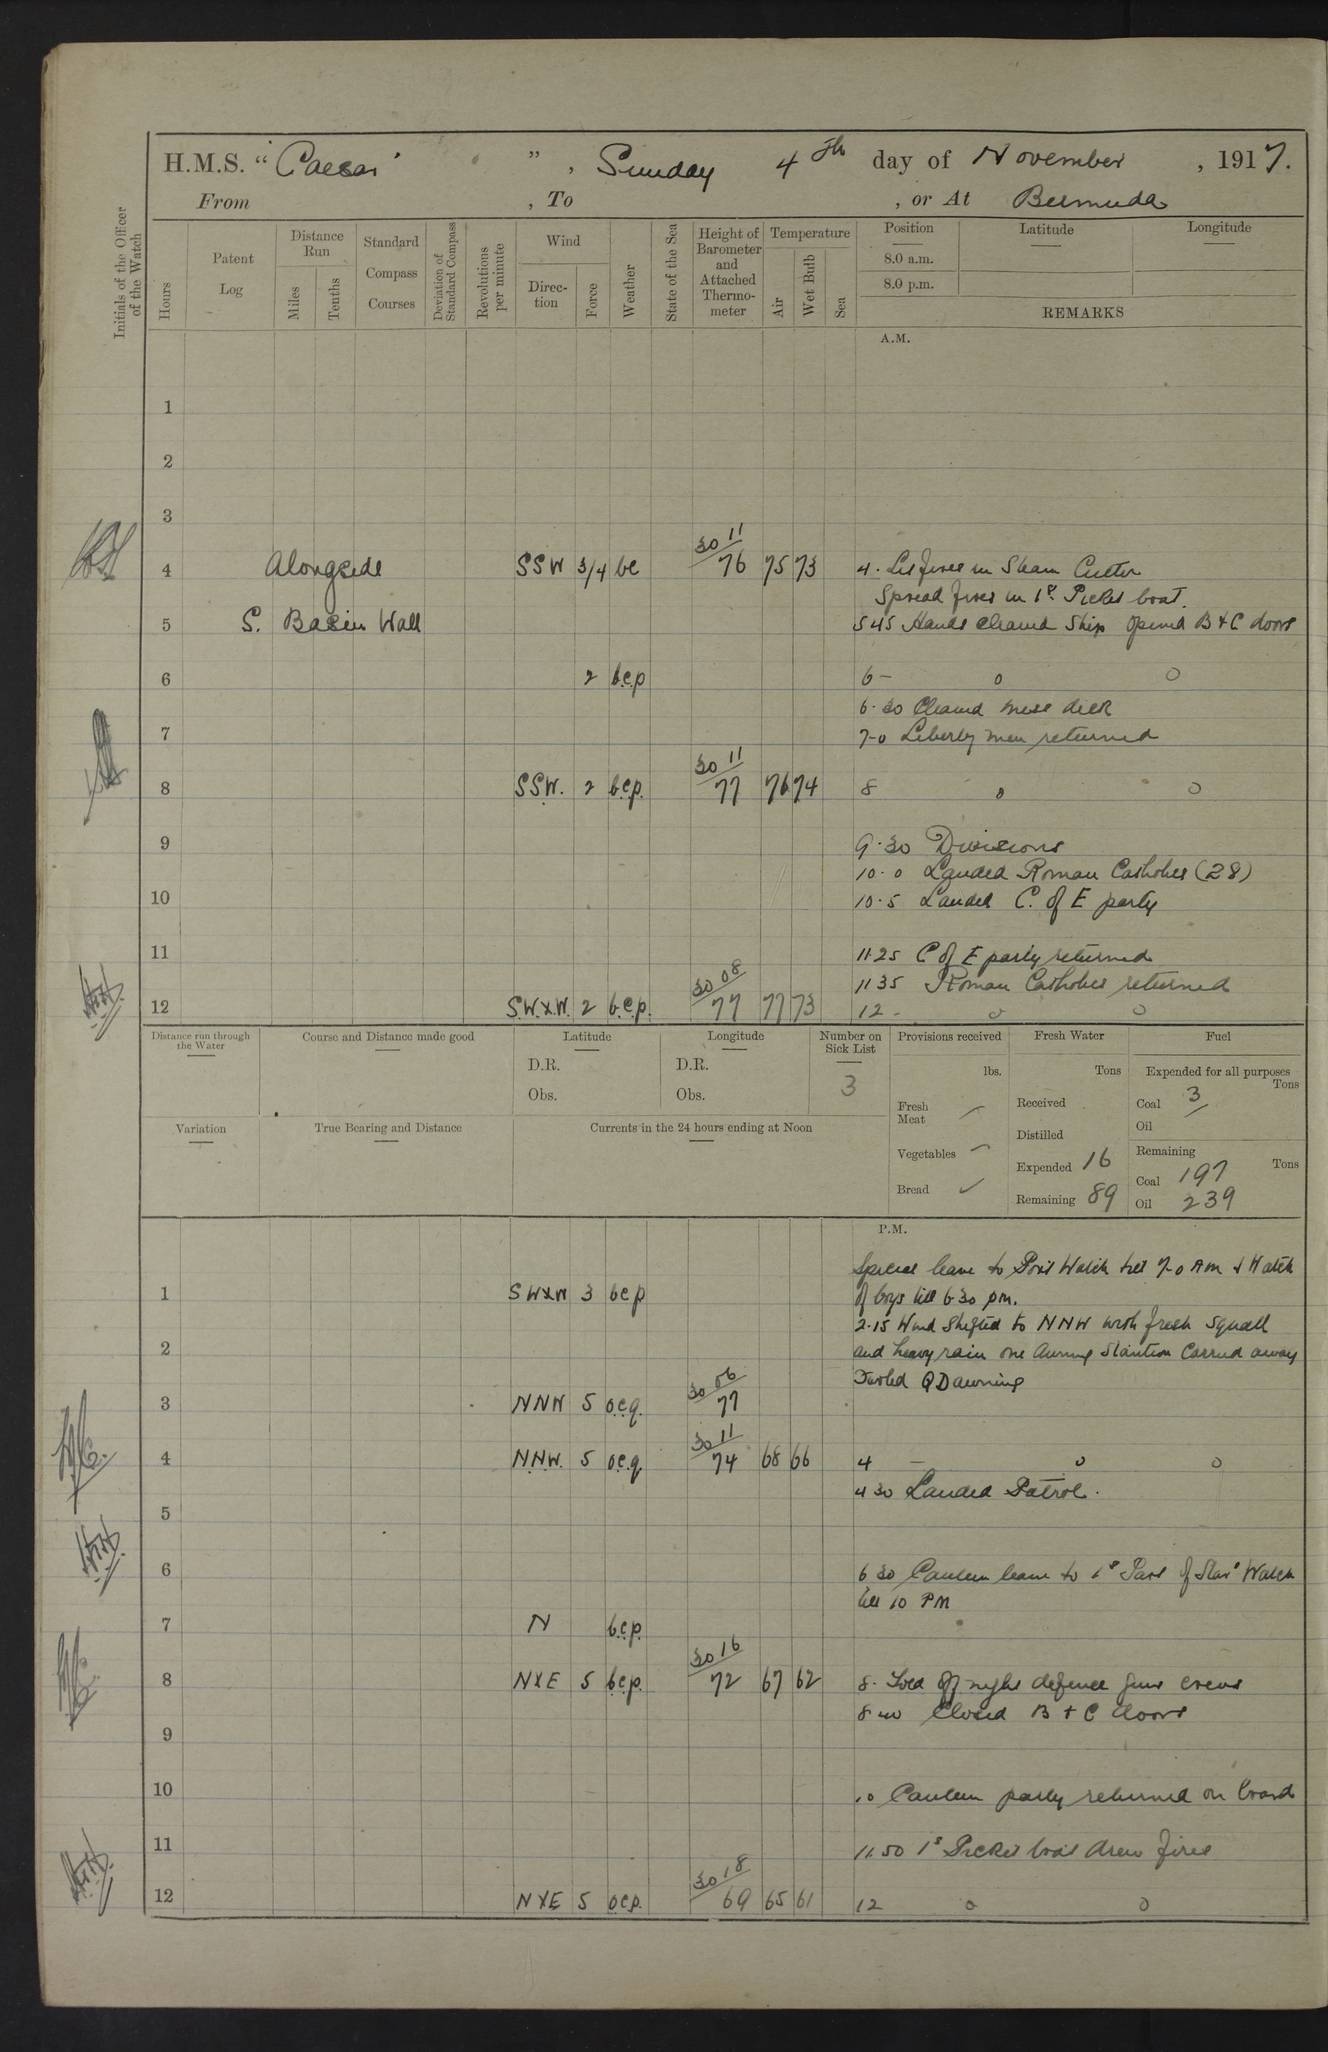 H.M.S. "Caesar", Sunday 4th day of November, 1917.
From , To , or At Bermuda
Initials of the Officer of the Watch
Hours
Patent Log
Distance Run
Miles
Tenths
Standard Compass Courses
Deviation of Standard Compass
Revolutions per minute
Wind
Direction
Force
Weather
State of the Sea
Height of Barometer and Attached Thermometer
Temperature
Air
Wet Bulb
Sea
Position Latitude Longitude
8.0 a.m.
8.0 p.m.
REMARKS
A.M.
1
2
3
4 Alongside SSW 3/4 bc 30 11 / 76 75 73 4. Lit fires in Steam Cutter
Spread fires in 1st Picket boat.
5 S. Basin Wall 5 45 Hands cleaned Ship opened B & C doors
6 2 b.c.p 6 - 0 0
6.30 Cleaned mess deck
7 7-0 Liberty men returned
8 SSW. 2 b.c.p. 30 11 / 77 76 74 8 0 0
9 9.30 Divisions
10.0 Landed Roman Catholics (28)
10 10.5 Landed C. of E party
11 11.25 C of E party returned
11 35 Roman Catholics returned
12 S.W.xW. 2 b.c.p. 30 08 / 77 77 73 12 - 0 0
Distance run through the Water
Course and Distance made good
Latitude
D.R.
Obs.
Longitude
D.R.
Obs.
Number on Sick List
3
Variation
True Bearing and Distance
Currents in the 24 hours ending at Noon
Provisions received
lbs.
Fresh Meat
Vegetables
Bread
Fresh Water
Tons
Received
Distilled
Expended 16
Remaining 89
Fuel
Expended for all purposes
Tons
Coal 3
Oil
Remaining
Tons
Coal 197
Oil 239
P.M.
Special leave to Port Watch till 7-0 AM & Watch
1 SWxW 3 bcp of boys till 6 30 pm.
2.15 Wind Shifted to NNW with fresh squall
2 and heavy rain one Awning Stantion Carried away
Furled QD awning
3 NNW 5 o.c.q. 30 06 / 77
4 N.N.W. 5 o.c.q. 30 11 / 74 68 66 4 - 0 0
4 30 Landed Patrol.
5
6 6 30 Canteen leave to 1st Part of Star'd Watch
till 10 PM
7 N b.c.p.
8 NxE 5 b.c.p. 30 16 / 72 67 62 8. Told off night defence gun crews
8 40 Closed B + C doors
9
10 10 Canteen party returned on board
11 11.50 1st Picket boat drew fires
12 NxE 5 o.c.p. 30 18 / 69 65 61 12 0 0